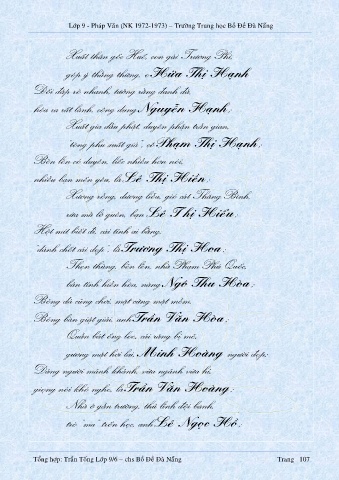 Lớp 9 - Pháp Văn (NK 1972-1973) – Trường Trung học Bồ Đề Đà Nẵng
Xuất thân gốc Huế, con gái Trương Phi,
góp ý thẳng thừng, o Hứa Thị Hạnh
Đối đáp rõ nhanh, tưởng rằng đanh đá,
hóa ra rất lành, công dung Nguyễn Hạnh;
Xuất gia đầu phật, duyên phận trần gian,
"tòng phu mất già", cô Phạm Thị Hạnh;
Bẽn lẽn có duyên, liếc nhiều hơn nói,
nhiều bạn mến yêu, là Lê Thị Hiền;
Xương rồng, dương liễu, gió cát Thăng Bình,
vừa mà lỡ quên, bạn Lê Thị Hiếu;
Hột mít biết đi, cái tính ai bằng,
"đành chết cái đẹp", là Trương Thị Hoa;
Thẹn thùng, bẽn lẽn, nhà Phạm Phú Quốc,
bản tính hiền hòa, nàng Ngô Thu Hòa;
Bóng đá cũng chơi, mặt cũng mặt mâm,
Bóng bàn giật giải, anh Trần Văn Hòa;
Quần bát ống leo, cái răng bị mẻ,
gương mặt hơi lai, Minh Hoàng người đẹp;
Dáng người mảnh khảnh, vừa ngành vừa hè,
giọng nói khè nghe, là Trần Văn Hoàng;
Nhà ở gần trường, thủ lĩnh đội banh,
trò "ma" trốn học, anh Lê Ngọc Hổ;
Tổng hợp: Trần Tống Lớp 9/6 – chs Bồ Đề Đà Nẵng
Trang 107